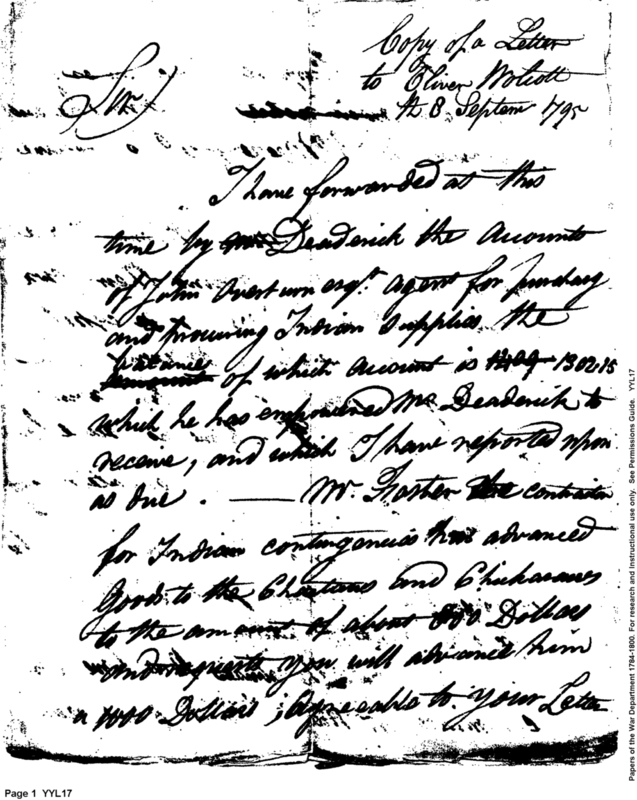 Copy of a Letter
to Oliver Wolcott
Sir
8 Septem 1795
I have forwarded at this
time by Deaderick the Accounts
of John Overturn esqr. agent for
and procuring Indian Supplies the
balance of which account is 1302.15
which he has empowered Mr. Deaderick to
receive, and which I have reported upon
as due. — Mr. Foster the contractor
for Indian contingencies has advanced
Goods to the Choctaws and Chickasaws
to the amount of about 800 Dollars
and requests you will advance him
a 1000 Dollars; Agreeable to your Letter
Page 1 YYL17
Papers of the War Department 1784-1800. For research and Instructional use only. See Permissions Guide. YYL17